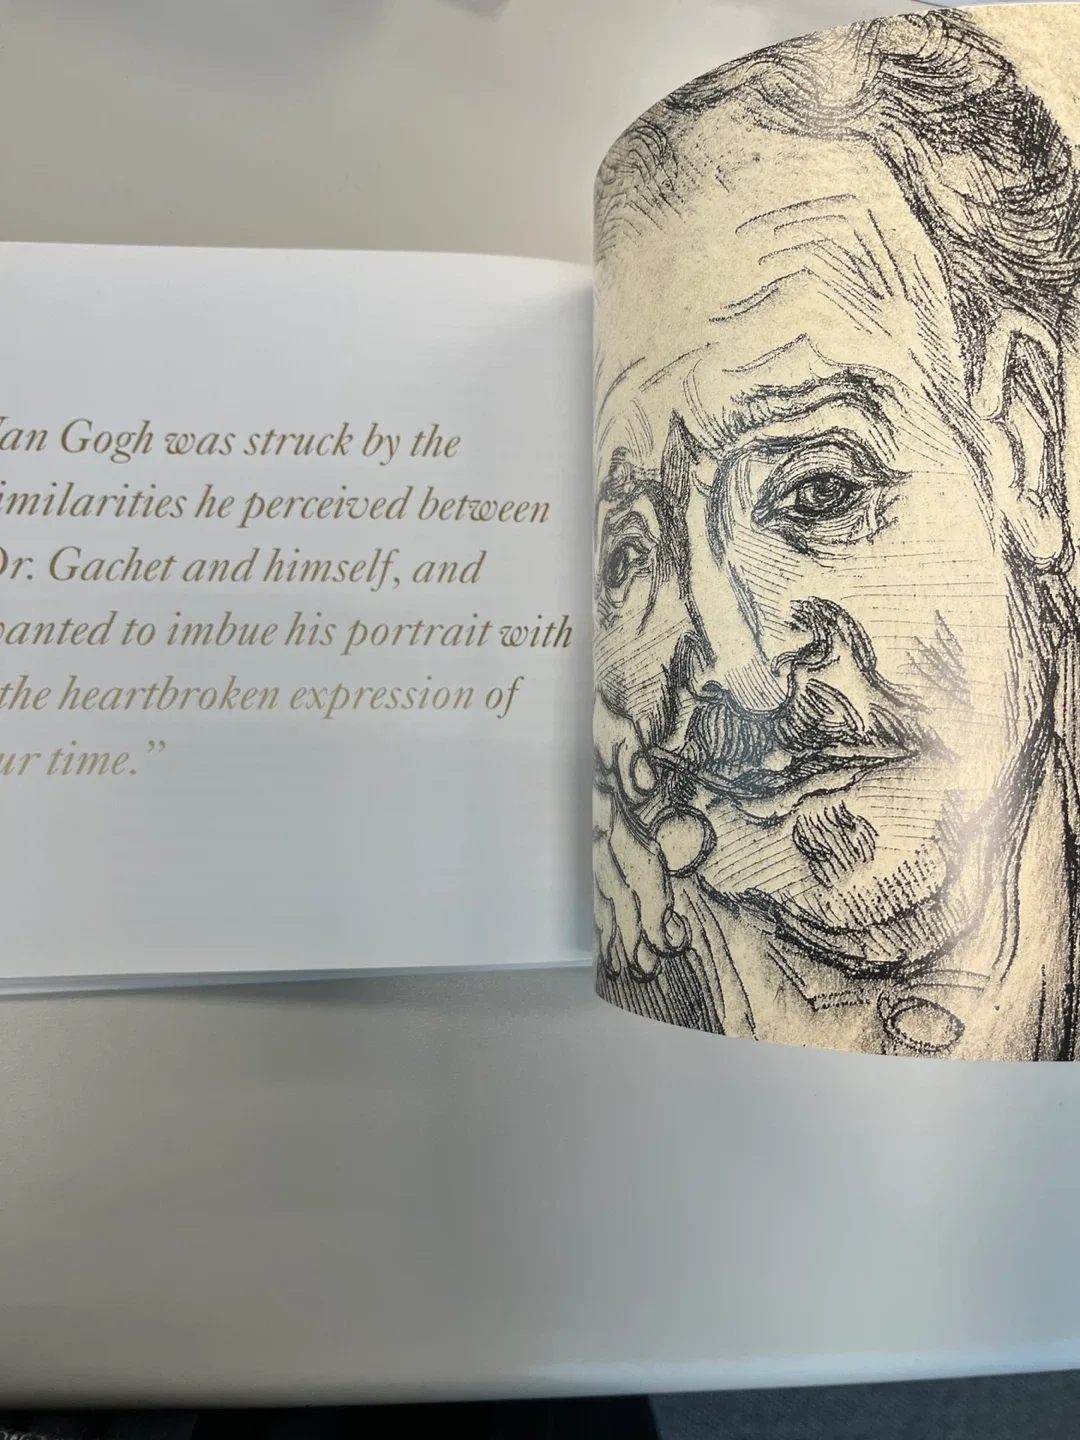 an Gogh was struck by the
imilarities he perceived between
Dr. Gachet and himself, and
anted to imbue his portrait with
the heartbroken expression of
ur time.”